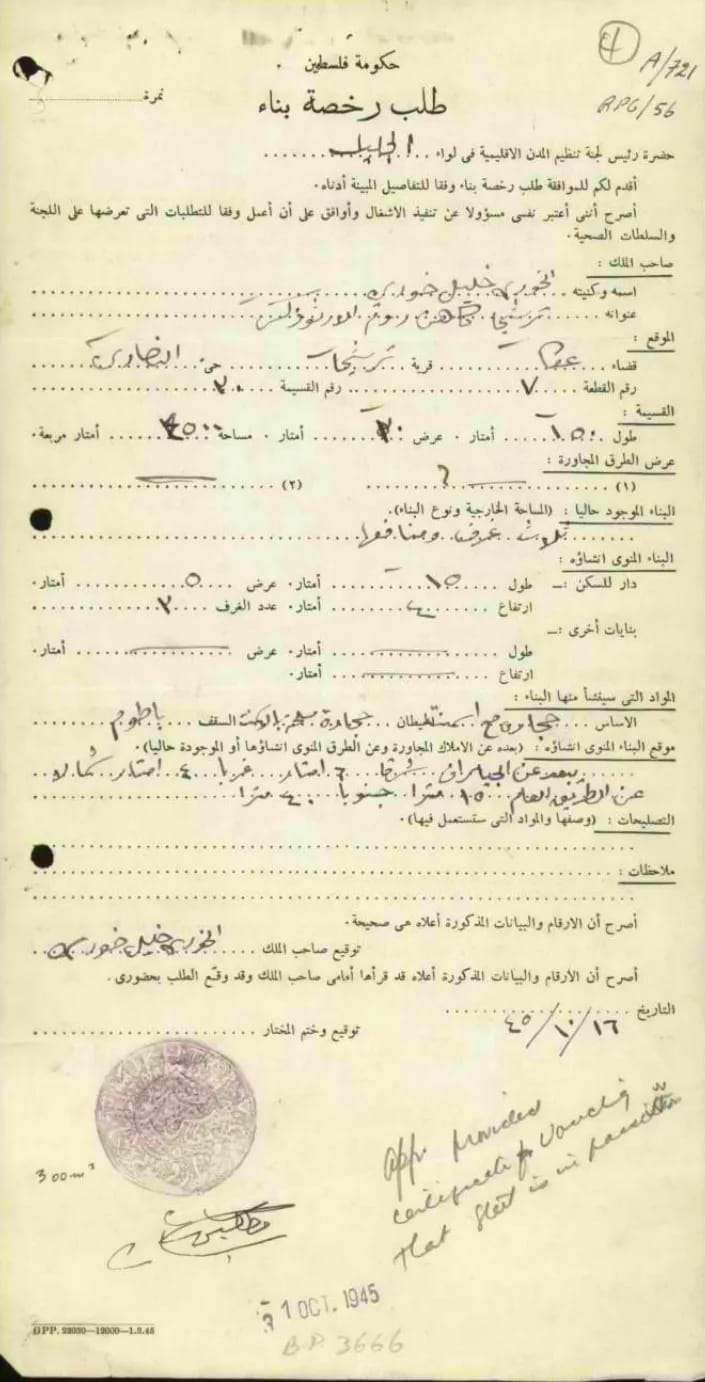 4
A/721
RP6/56
حكومة فلسطين .
نمرة
طلب رخصة بناء
حضرة رئيس لجنة تنظيم المدن الاقليمية فى لواء الجليل
أقدم لكم للموافقة طلب رخصة بناء وفقا للتفاصيل المبينة أدناه.
أصرح أننى أعتبر نفسى مسؤولا عن تنفيذ الاشغال وأوافق على أن أعمل وفقا للمتطلبات التى تعرضها على اللجنة
والسلطات الصحية.
صاحب الملك :
اسمه وكنيته الخوري خليل خوري
عنوانه ترشيحا
الموقع :
قضاء عكا قرية ترشيحا حى النصارى
رقم القطعة ٧ رقم القسيمة ٢٠
القسيمة :
طول ١٥٠ أمتار. عرض ٣٠ أمتار. مساحة ٤٥٠٠ أمتار مربعة.
عرض الطرق المجاورة :
(١) (٢)
البناء الموجود حاليا : (المساحة الخارجية ونوع البناء).
ثلاث غرف ومنافعها
البناء المنوى انشاؤه :
دار للسكن :ـ طول ١٥ أمتار. عرض ٥ أمتار.
ارتفاع ٤ أمتار. عدد الغرف ٣
بنايات أخرى :ـ
طول أمتار. عرض أمتار.
ارتفاع أمتار.
المواد التى سينشأ منها البناء :
الاساس حجارة مع اسمنت الحيطان حجارة السقف باطون
موقع البناء المنوى انشاؤه : (بعده عن الاملاك المجاورة وعن الطرق المنوى انشاؤها أو الموجودة حاليا).
يبعد عن الجيران شرقا ٦ امتار غربا ٤ امتار شمالا
عن الطريق العام ١٥ مترا جنوبا ٤٠ مترا
التصليحات : (وصفها والمواد التى ستستعمل فيها).
ملاحظات :
أصرح أن الارقام والبيانات المذكورة أعلاه هى صحيحة.
توقيع صاحب الملك الخوري خليل خوري
أصرح أن الارقام والبيانات المذكورة أعلاه قد قرأها أمامى صاحب الملك وقد وقع الطلب بحضورى.
التاريخ ٤٥/١٠/١٦
توقيع وختم المختار
300 m³
App. provided
certificate
that is in
31 OCT. 1945
B.P. 3666